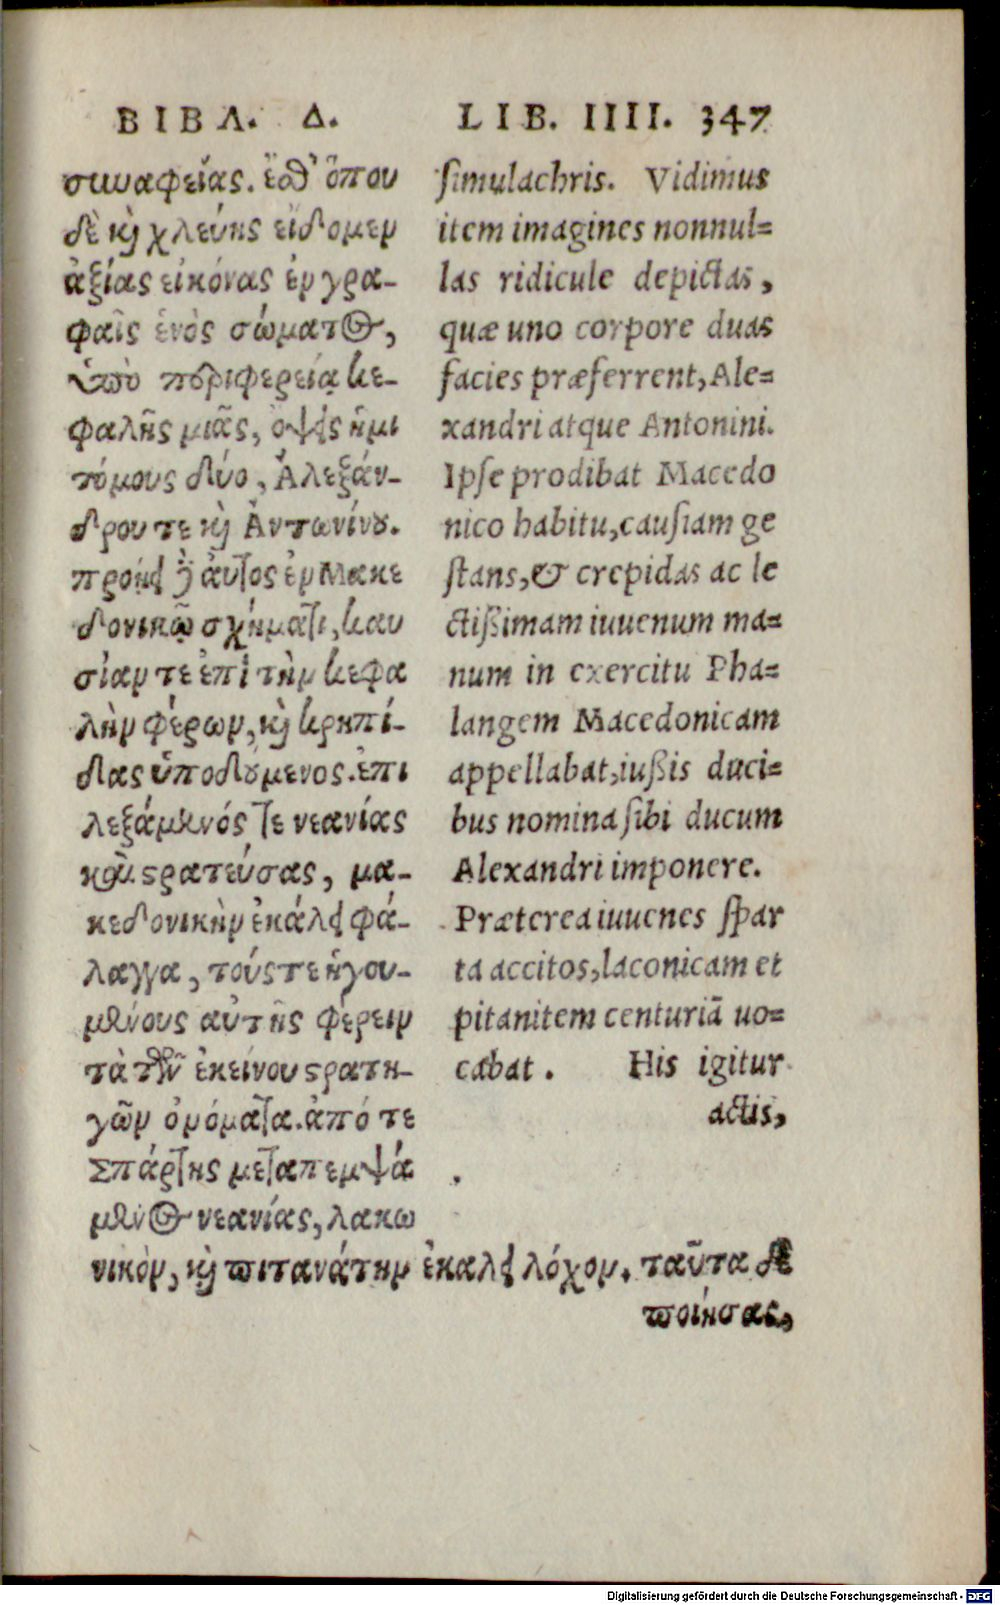 ΒΙΒΛ. Δ.
συναφείας. ἔσθ' ὅπου
δὲ καὶ χλεύης εἴδομεν
ἀξίας εἰκόνας ἐν γρα-
φαῖς ἑνὸς σώματος,
ὑπὸ περιφερείᾳ κε-
φαλῆς μιᾶς, ὄψεις ἡμι
τόμους δύο, Ἀλεξάν-
δρου τε καὶ Ἀντωνίνου.
προῄει δὲ αὐτος ἐν Μακε
δονικῷ σχήματι, καυ
σίαν τε ἐπὶ τὴν κεφα
λὴν φέρων, καὶ κρηπί-
δας ὑποδούμενος. ἐπι
λεξάμενός τε νεανίας
καὶ στρατεύσας, μα-
κεδονικὴν ἐκάλει φά-
λαγγα, τούς τε ἡγου-
μένους αὐτῆς φέρειν
τὰ τῶν ἐκείνου στρατη-
γῶν ὀνόματα. ἀπό τε
Σπάρτης μεταπεμψά
μενος νεανίας, λακω
νικὸν, καὶ πιτανάτην ἐκάλει λόχον. ταῦτα δὲ
ποιήσας,
LIB. IIII. 347
simulachris. Vidimus
item imagines nonnul=
las ridicule depictas,
quæ uno corpore duas
facies præferrent, Ale=
xandri atque Antonini.
Ipse prodibat Macedo
nico habitu, causiam ge
stans, & crepidas ac le
ctißimam iuuenum ma=
num in exercitu Pha=
langem Macedonicam
appellabat, iußis duci=
bus nomina sibi ducum
Alexandri imponere.
Præterea iuuenes spar
ta accitos, laconicam et
pitanitem centuriā uo=
cabat. His igitur
actis,
Digitalisierung gefördert durch die Deutsche Forschungsgemeinschaft - DFG